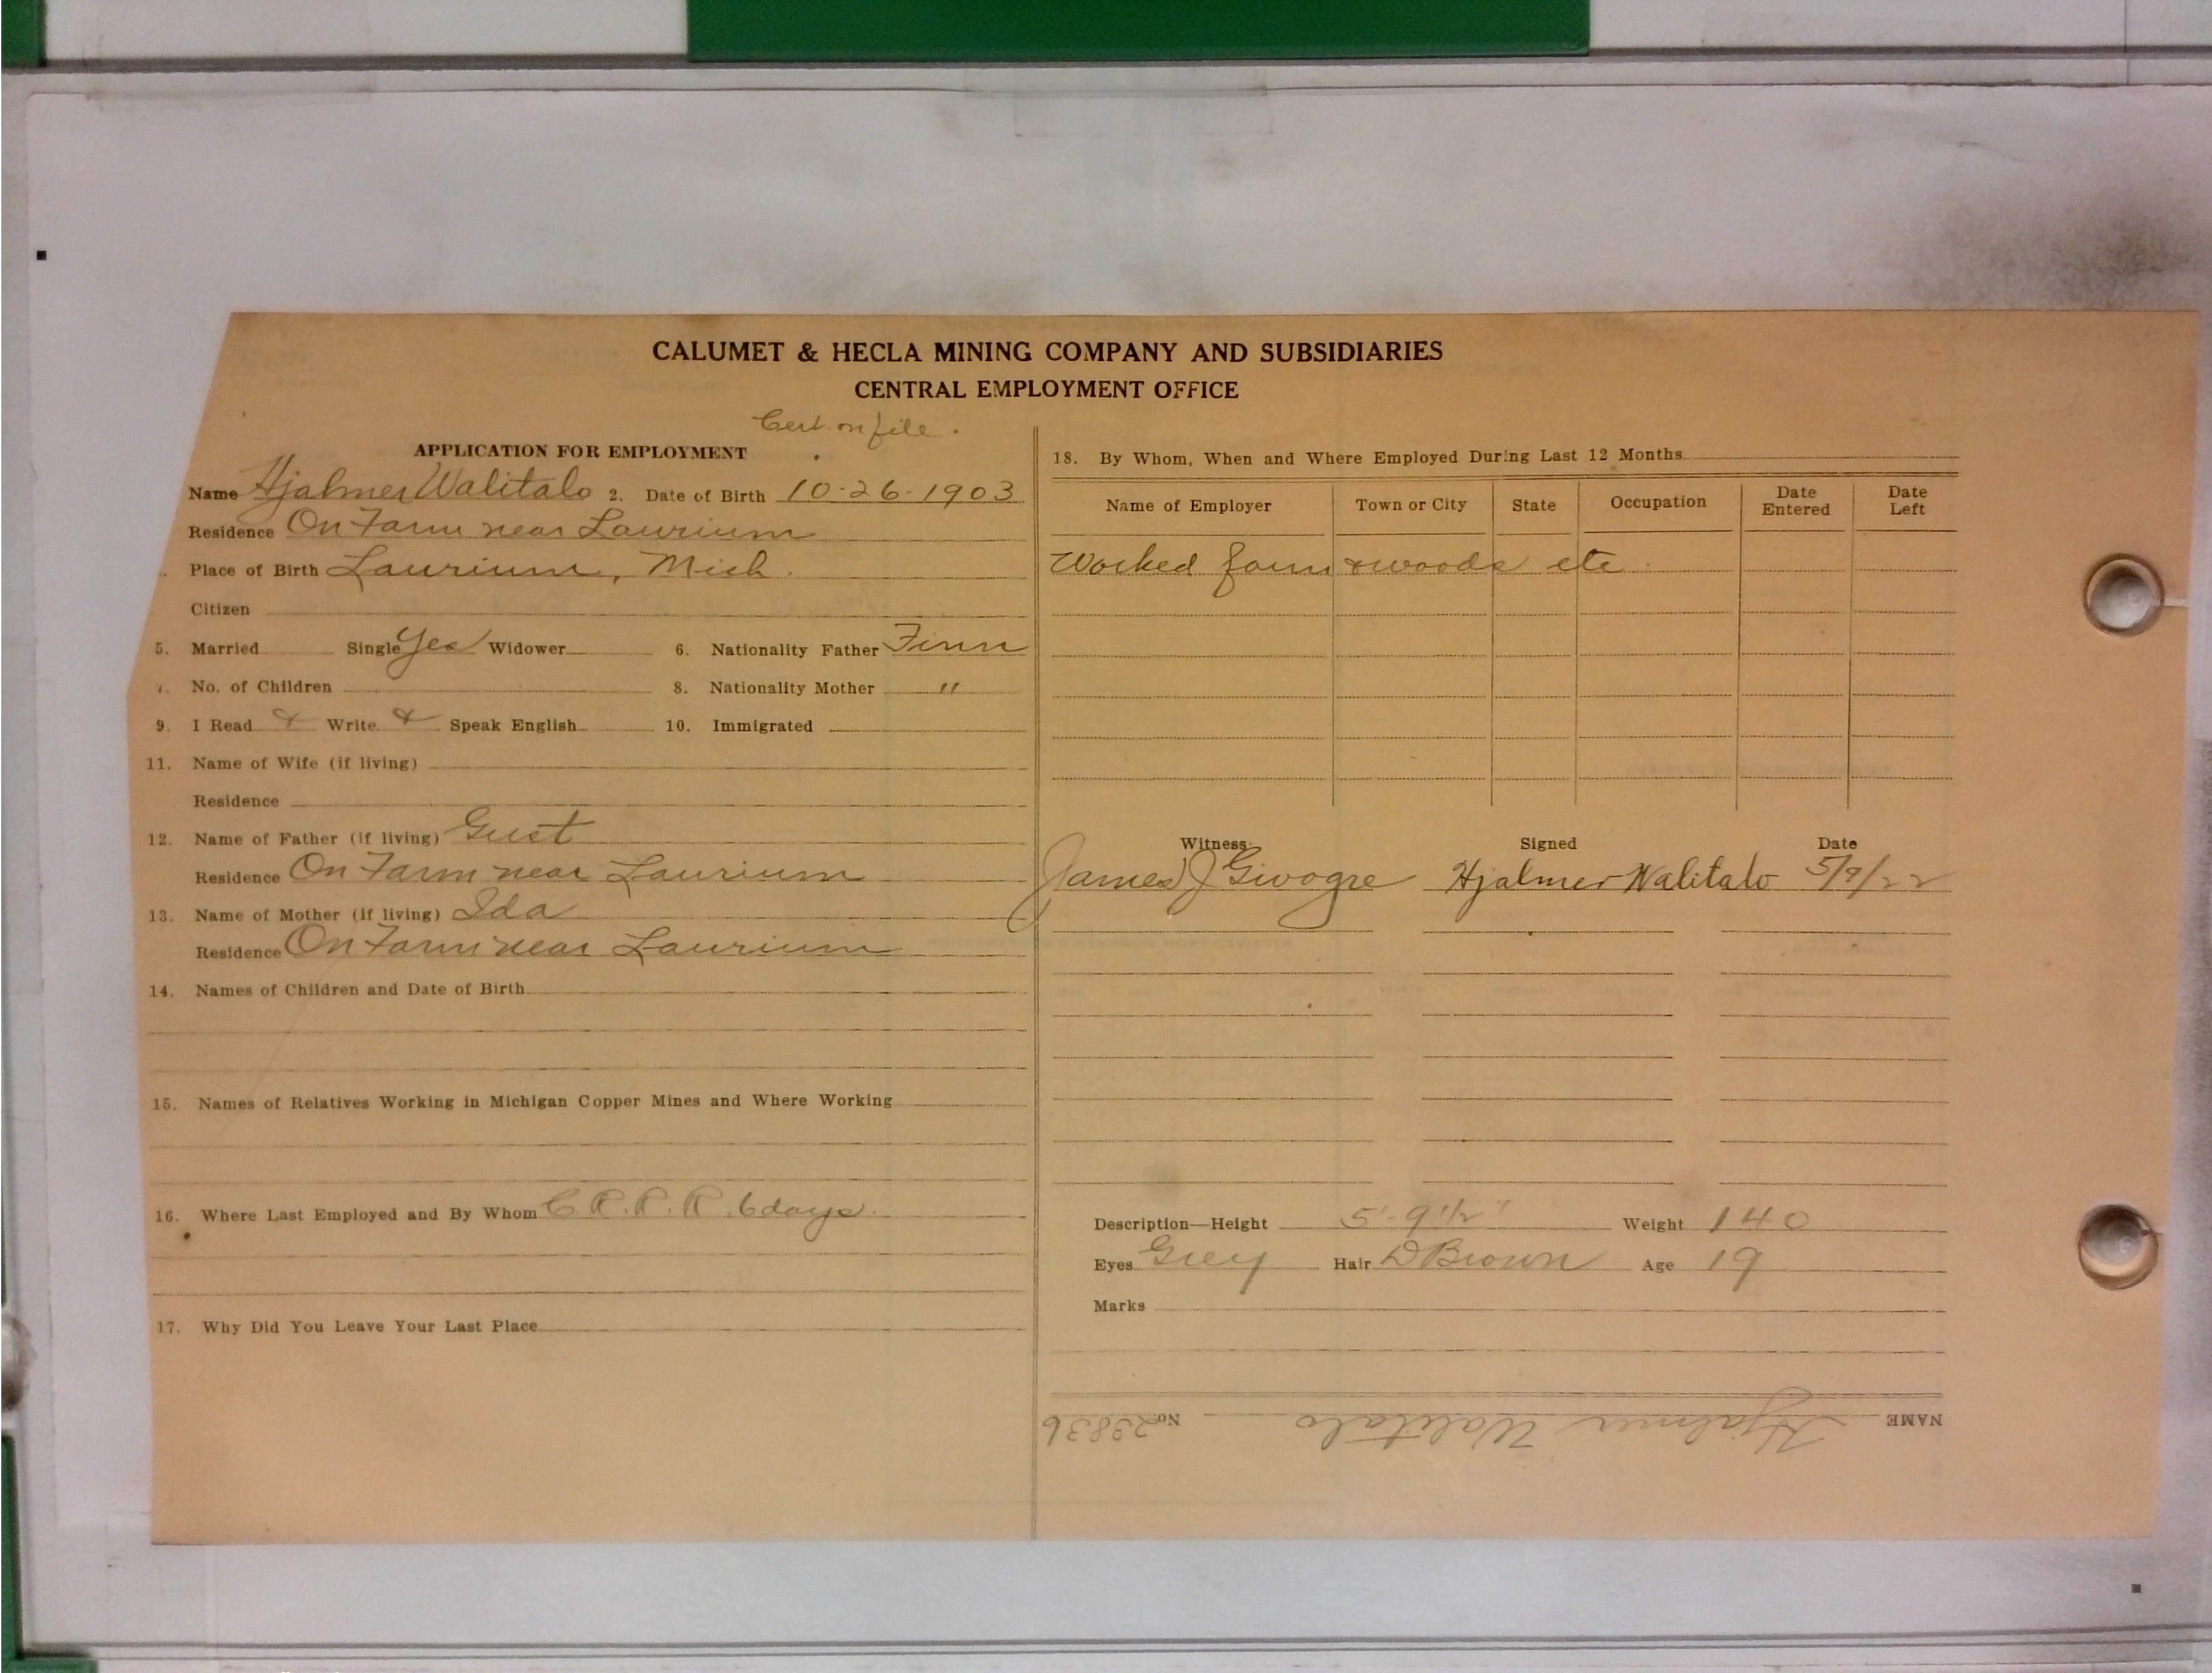 CALUMET & HECLA MINING COMPANY AND SUBSIDIARIES
CENTRAL EMPLOYMENT OFFICE
Cert. on file.
APPLICATION FOR EMPLOYMENT
Name Hjalmer Walitalo 2. Date of Birth 10-26-1903
Residence On Farm near Laurium
Place of Birth Laurium, Mich.
Citizen
5. Married Single Yes Widower 6. Nationality Father Finn
7. No. of Children 8. Nationality Mother "
9. I Read & Write & Speak English 10. Immigrated
11. Name of Wife (if living)
Residence
12. Name of Father (if living) Gust
Residence On Farm near Laurium
13. Name of Mother (if living) Ida
Residence On Farm near Laurium
14. Names of Children and Date of Birth
15. Names of Relatives Working in Michigan Copper Mines and Where Working
16. Where Last Employed and By Whom C R. R. R. 6 days.
17. Why Did You Leave Your Last Place
18. By Whom, When and Where Employed During Last 12 Months
Name of Employer Town or City State Occupation Date Entered Date Left
Worked farm & woods etc.
Witness Signed Date
James J Hjalmer Walitalo 5/9/22
Description—Height 5'-9 1/2" Weight 140
Eyes Grey Hair D Brown Age 19
Marks
NAME Hjalmer Walitalo No. 23836